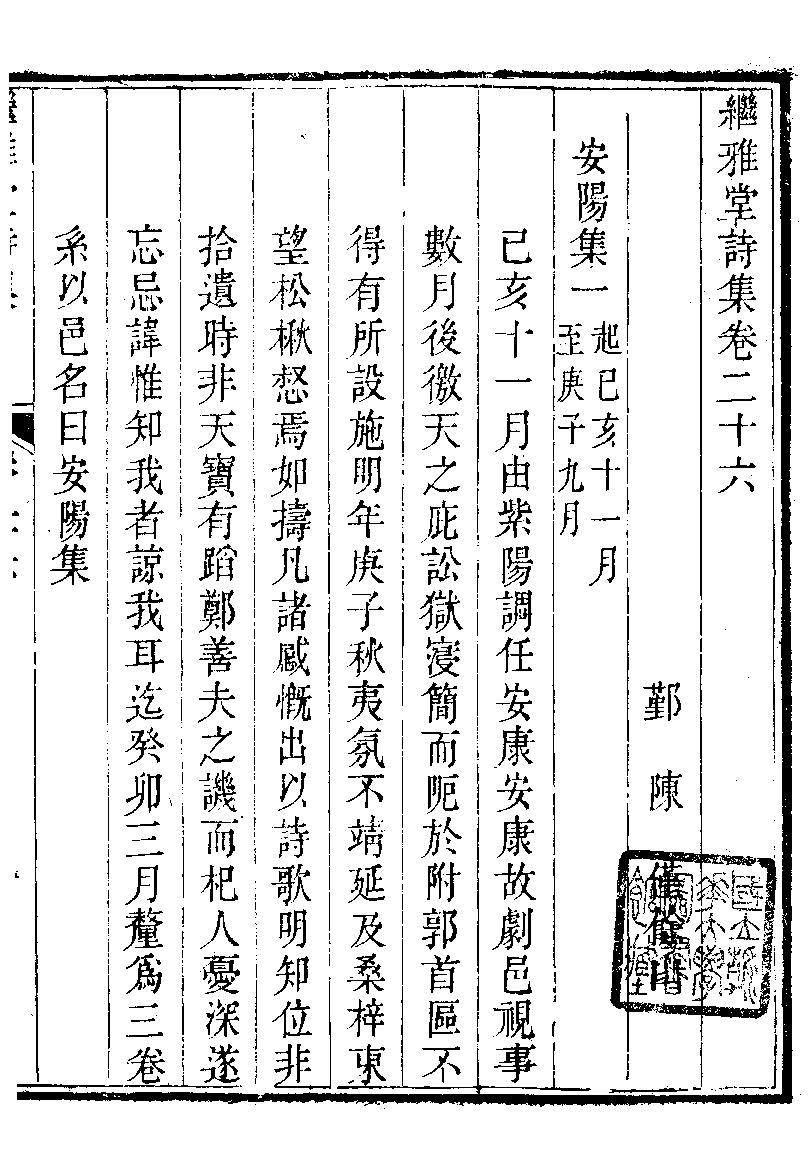 繼雅堂詩集卷二十六
鄞　陳僅餘山
安陽集一 起己亥十一月
至庚子九月
己亥十一月由紫陽調任安康安康故劇邑視事
數月後徼天之庇訟獄寖簡而阨於附郭首區不
得有所設施明年庚子秋夷氛不靖延及桑梓東
望松楸惄焉如擣凡諸感慨出以詩歌明知位非
拾遺時非天寶有蹈鄭善夫之譏而杞人憂深遂
忘忌諱惟知我者諒我耳迄癸卯三月釐爲三卷
系以邑名曰安陽集